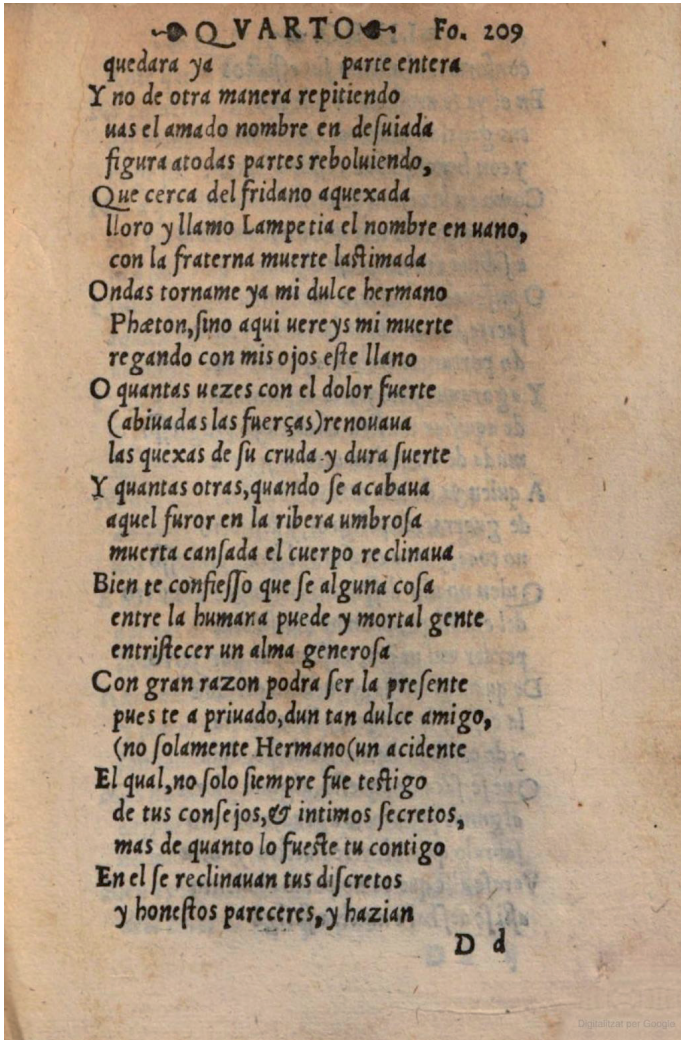 QVARTO Fo. 209
quedara ya parte entera
Y no de otra manera repitiendo
uas el amado nombre en deſuiada
figura atodas partes reboluiendo,
Que cerca del fridano aquexada
lloro y llamo Lampetia el nombre en uano,
con la fraterna muerte laſtimada
Ondas torname ya mi dulce hermano
Phæton, ſino aqui uereys mi muerte
regando con mis ojos eſte llano
O quantas uezes con el dolor fuerte
(abiuadas las fuerças) renouaua
las quexas de ſu cruda y dura ſuerte
Y quantas otras, quando ſe acabaua
aquel furor en la ribera umbroſa
muerta canſada el cuerpo reclinaua
Bien te confieſſo que ſe alguna coſa
entre la humana puede y mortal gente
entriſtecer un alma generoſa
Con gran razon podra ſer la preſente
pues te a priuado, dun tan dulce amigo,
(no ſolamente Hermano(un acidente
El qual, no ſolo ſiempre fue teſtigo
de tus conſejos, & intimos ſecretos,
mas de quanto lo fueſte tu contigo
En el ſe reclinauan tus diſcretos
y honeſtos pareceres, y hazian
D d
Digitalitzat per Google